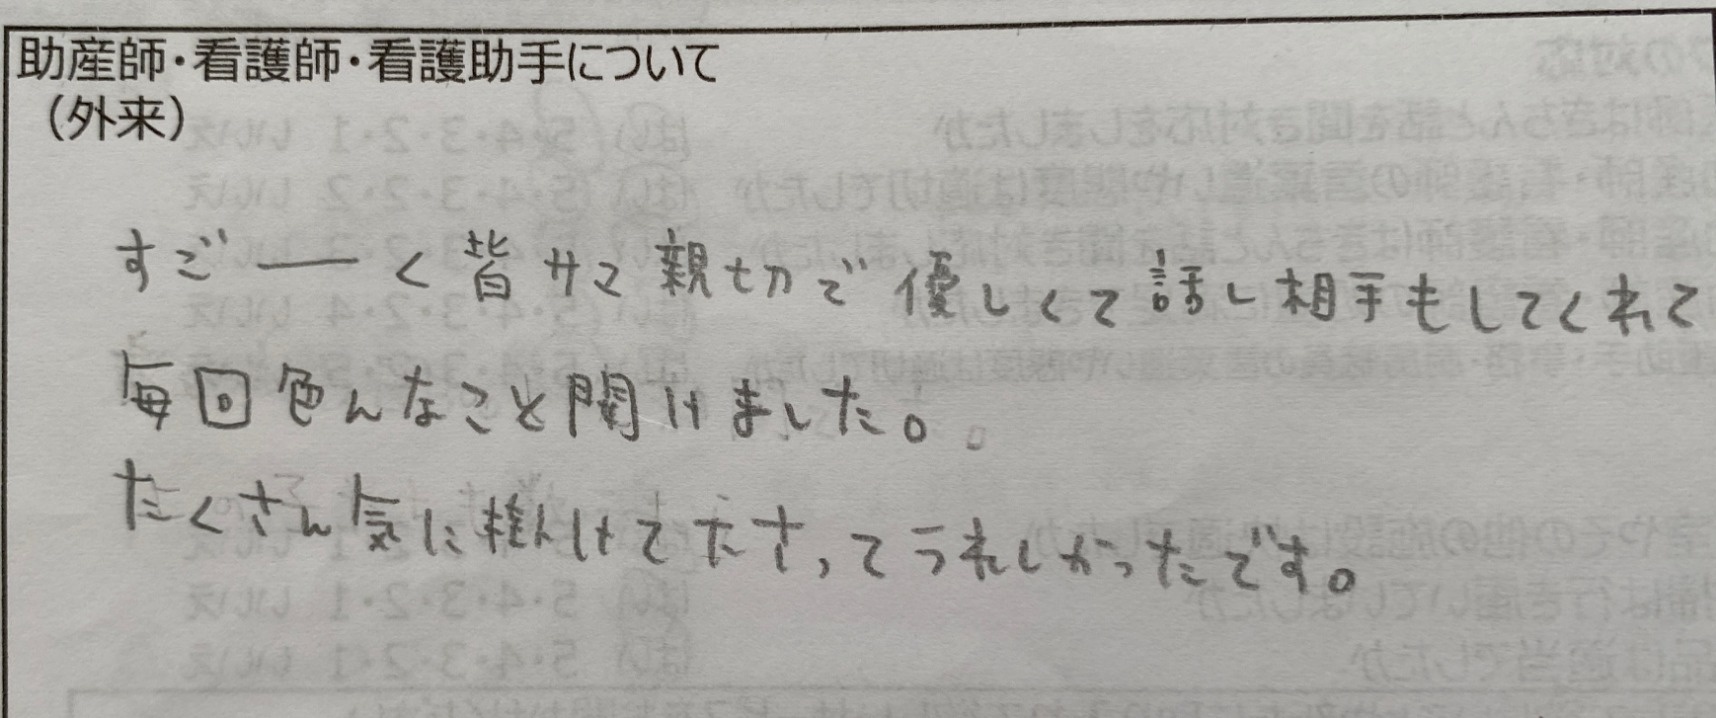 助産師・看護師・看護助手について
（外来）
すご━く皆サマ親切で優しくて話し相手もしてくれて
毎回色んなこと聞けました。
たくさん気に掛けて下さってうれしかったです。